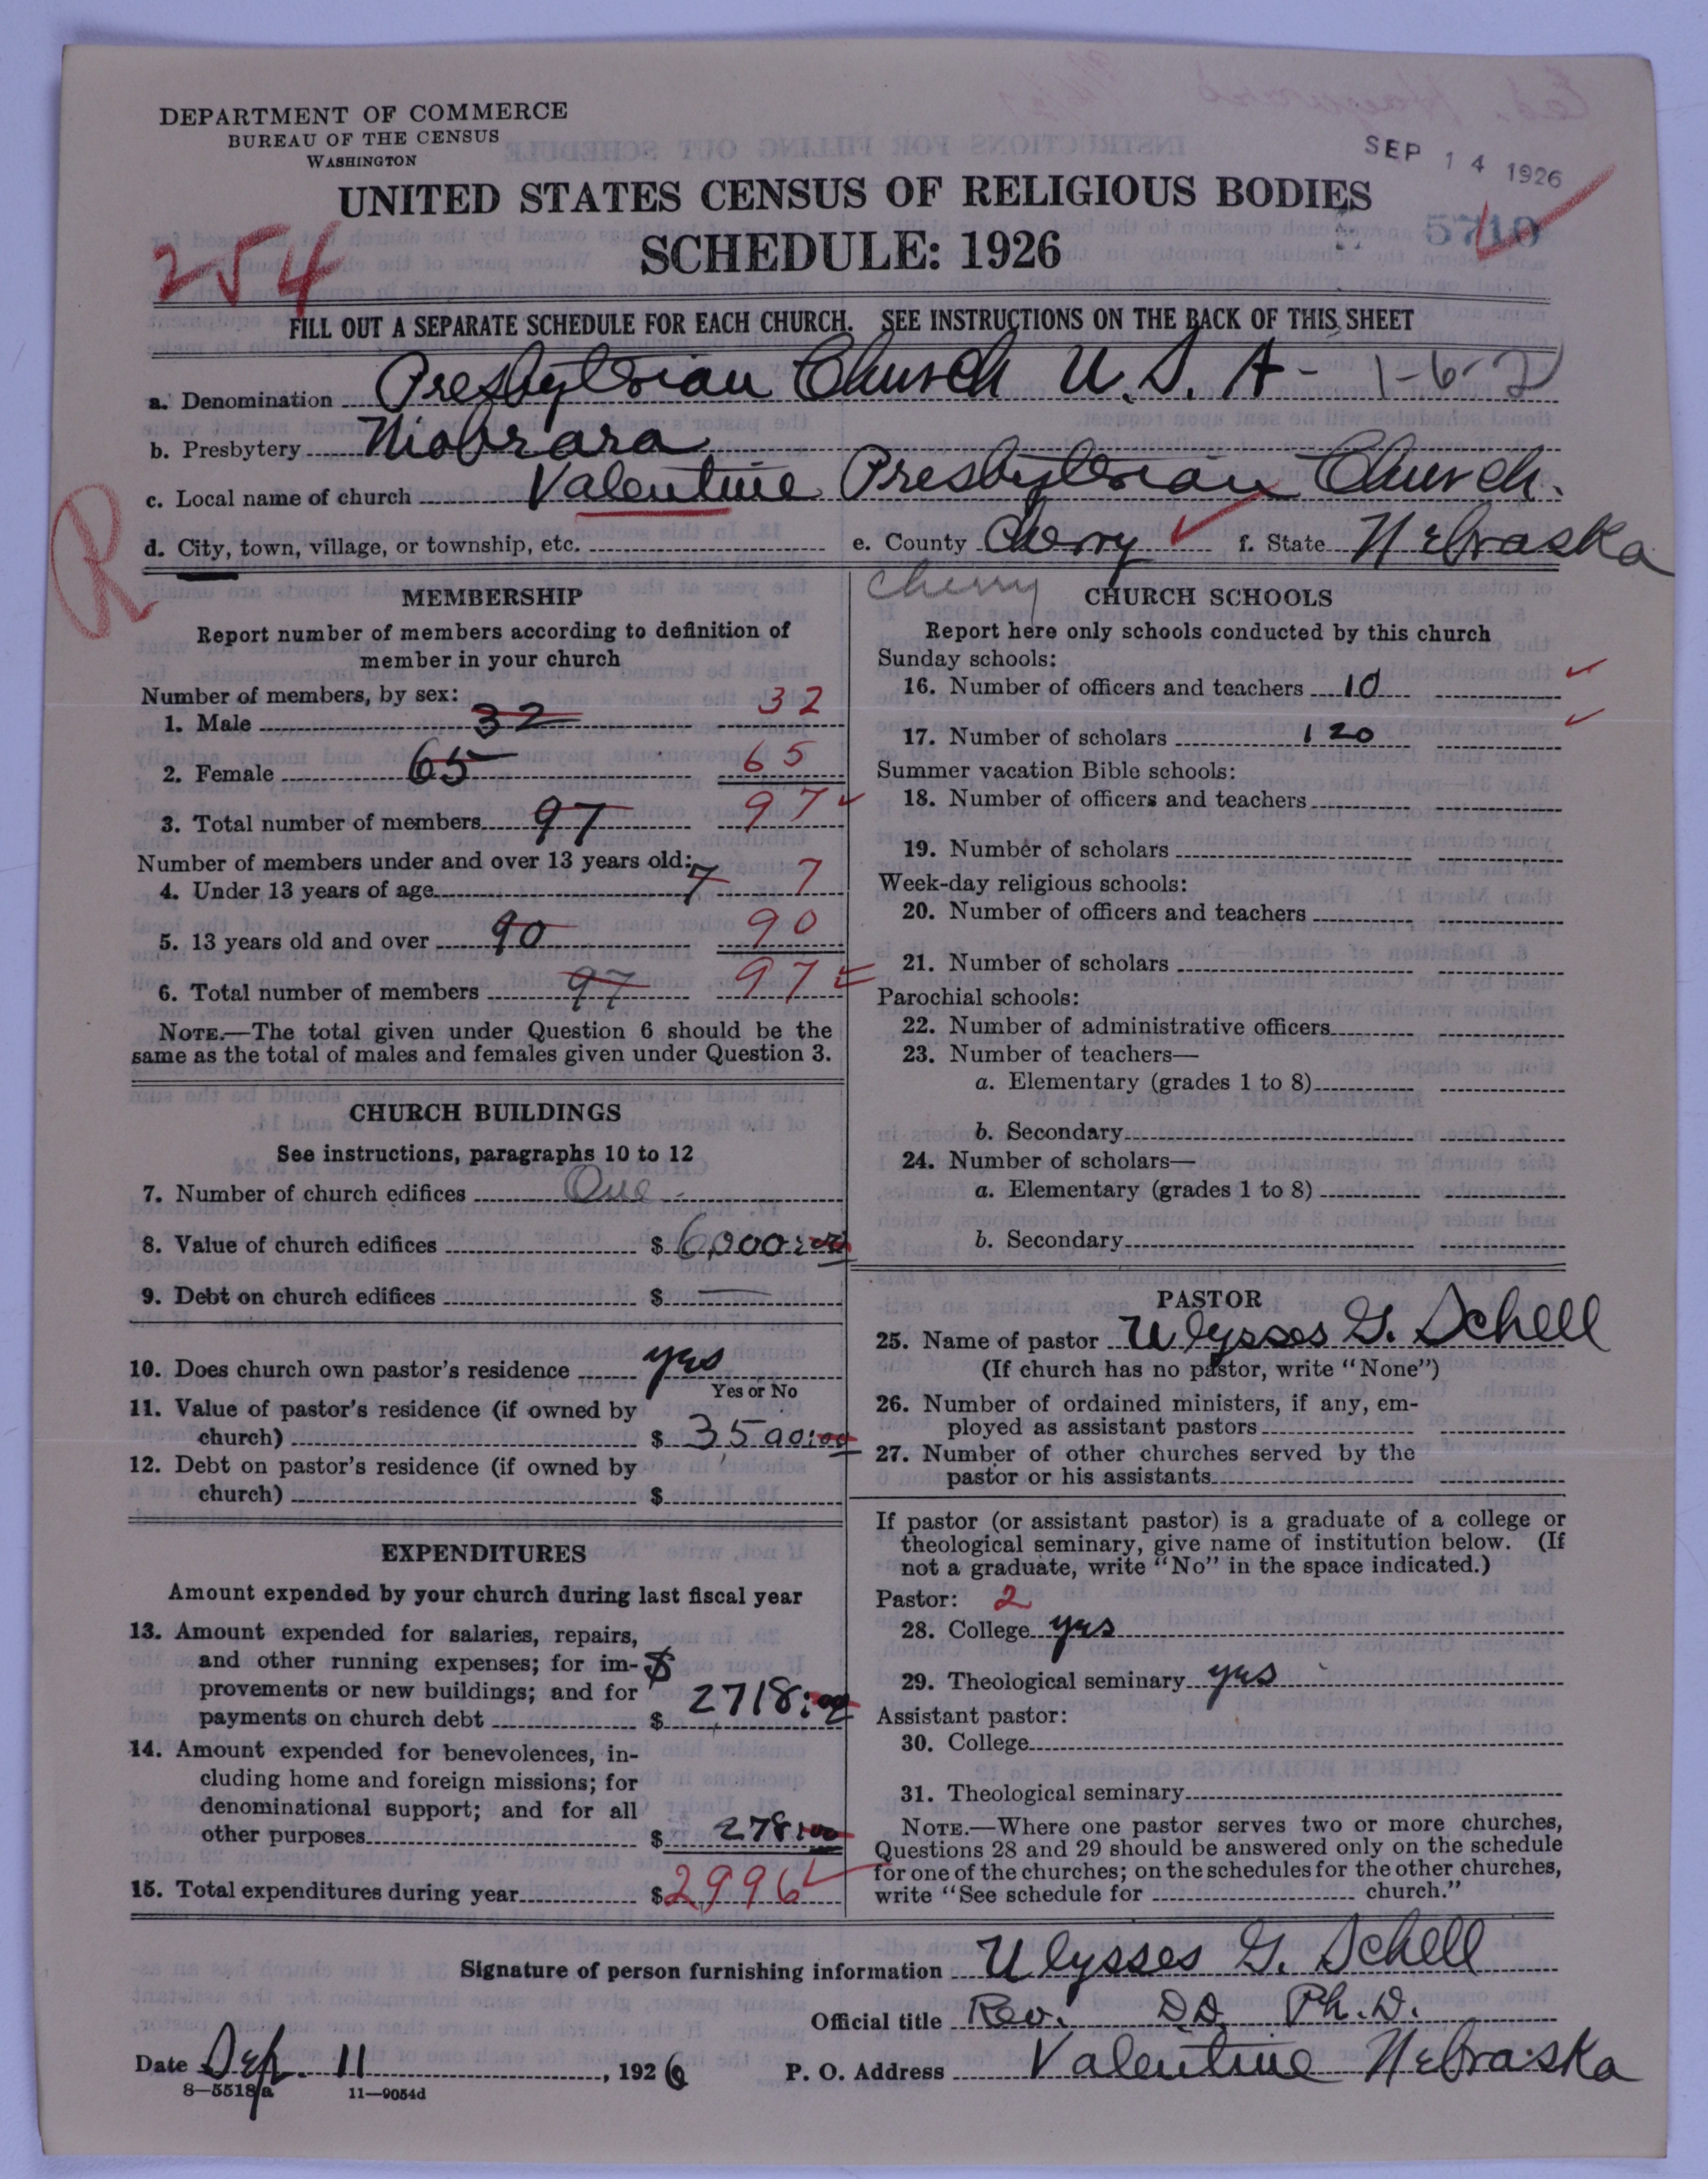 DEPARTMENT OF COMMERCE
BUREAU OF THE CENSUS
WASHINGTON
SEP 14 1926
UNITED STATES CENSUS OF RELIGIOUS BODIES
SCHEDULE: 1926
254
FILL OUT A SEPARATE SCHEDULE FOR EACH CHURCH. SEE INSTRUCTIONS ON THE BACK OF THIS SHEET
a. Denomination Presbyterian Church U.S.A- 1-6-2
b. Presbytery
c. Local name of church Valentine Presbyterian Church.
d. City, town, village, or township, etc. e. County Cherry f. State Nebraska
R
Cherry
MEMBERSHIP
Report number of members according to definition of
member in your church
Number of members, by sex:
1. Male 32 32
2. Female 65 65
3. Total number of members 97 97
Number of members under and over 13 years old:
4. Under 13 years of age 7 7
5. 13 years old and over 90 90
6. Total number of members 97 97
NOTE.—The total given under Question 6 should be the
same as the total of males and females given under Question 3.
CHURCH BUILDINGS
See instructions, paragraphs 10 to 12
7. Number of church edifices One
8. Value of church edifices $ 6,000:00
9. Debt on church edifices $ —
10. Does church own pastor's residence yes
Yes or No
11. Value of pastor's residence (if owned by
church) $ 3500:00
12. Debt on pastor's residence (if owned by
church) $
EXPENDITURES
Amount expended by your church during last fiscal year
13. Amount expended for salaries, repairs,
and other running expenses; for im- $
provements or new buildings; and for
payments on church debt $ 2718:00
14. Amount expended for benevolences, in-
cluding home and foreign missions; for
denominational support; and for all
other purposes $ 278:00
15. Total expenditures during year $ 2996
CHURCH SCHOOLS
Report here only schools conducted by this church
Sunday schools:
16. Number of officers and teachers 10
17. Number of scholars 120
Summer vacation Bible schools:
18. Number of officers and teachers
19. Number of scholars
Week-day religious schools:
20. Number of officers and teachers
21. Number of scholars
Parochial schools:
22. Number of administrative officers
23. Number of teachers—
a. Elementary (grades 1 to 8)
b. Secondary
24. Number of scholars—
a. Elementary (grades 1 to 8)
b. Secondary
PASTOR
25. Name of pastor Ulysses G. Schell
(If church has no pastor, write "None")
26. Number of ordained ministers, if any, em-
ployed as assistant pastors
27. Number of other churches served by the
pastor or his assistants
If pastor (or assistant pastor) is a graduate of a college or
theological seminary, give name of institution below. (If
not a graduate, write "No" in the space indicated.)
Pastor: 2
28. College yes
29. Theological seminary yes
Assistant pastor:
30. College
31. Theological seminary
NOTE.—Where one pastor serves two or more churches,
Questions 28 and 29 should be answered only on the schedule
for one of the churches; on the schedules for the other churches,
write "See schedule for church."
Signature of person furnishing information Ulysses G. Schell
Official title Rev. D.D. Ph.D.
Date Sep. 11, 1926 P. O. Address Valentine Nebraska
8—5518a 11—9054d